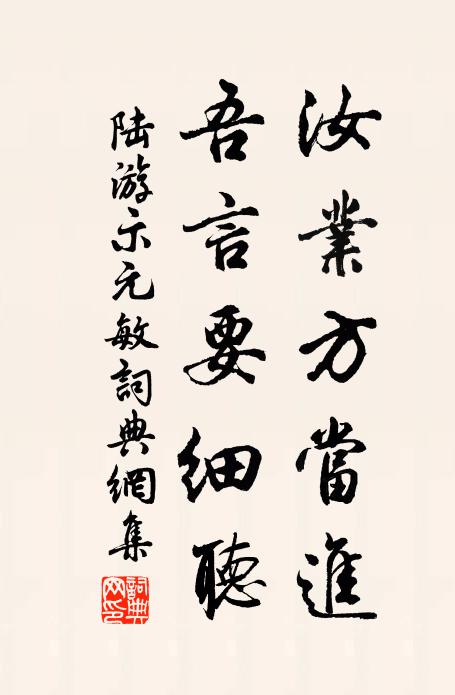 汝業方當進
吾言要細聽
陸游示元敏詞典網集
詞典網印